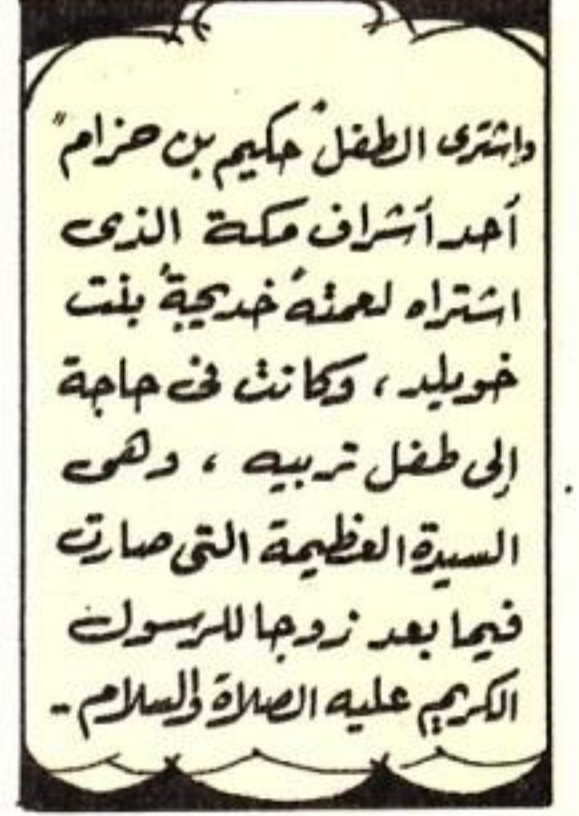 واشترى الطفل "حكيم بن حزام"
أحد أشراف مكة الذى
اشتراه لعمته "خديجة بنت
خويلد، وكانت فى حاجة
إلى طفل تربيه ، وهى
السيدة العظيمة التى صارت
فيما بعد زوجا للرسول
الكريم عليه الصلاة والسلام ..